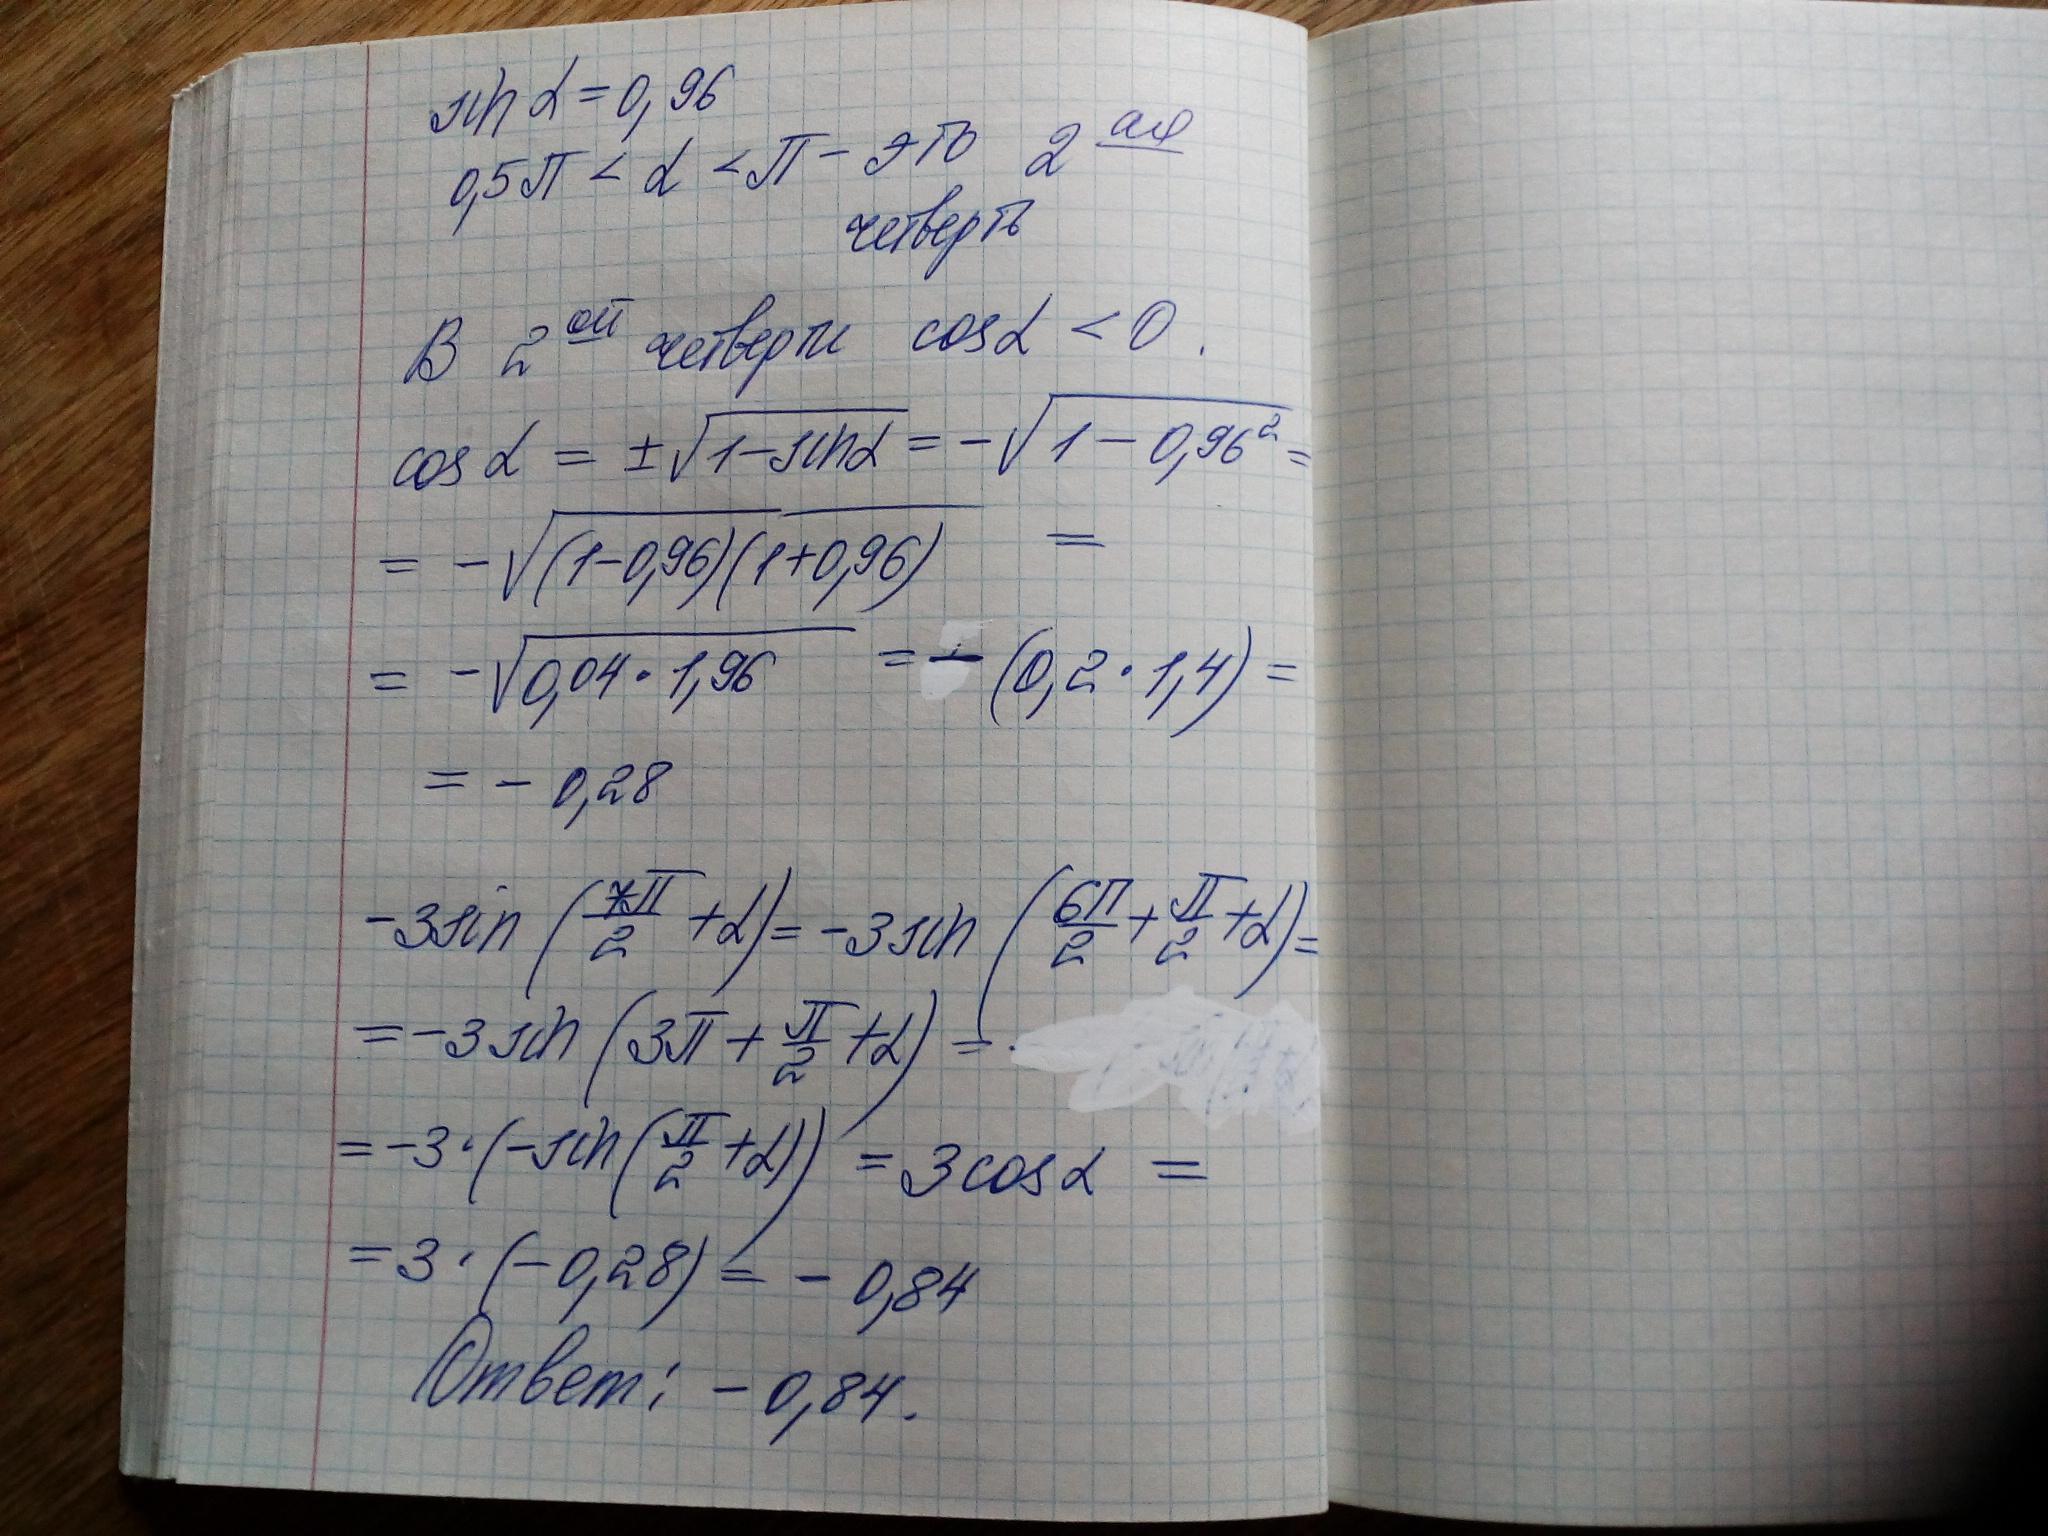 sin α = 0,96
0,5π < α < π - это 2ая
четверть
В 2ой четверти cos α < 0.
cos α = ±√(1-sin α) = -√(1-0,96²) =
= -√((1-0,96)(1+0,96)) =
= -√(0,04·1,96) = -(0,2·1,4) =
= -0,28
-3sin(7π/2+α) = -3sin(6π/2+π/2+α) =
= -3sin(3π+π/2+α) =
= -3·(-sin(π/2+α)) = 3cos α =
= 3·(-0,28) = -0,84
Ответ: -0,84.